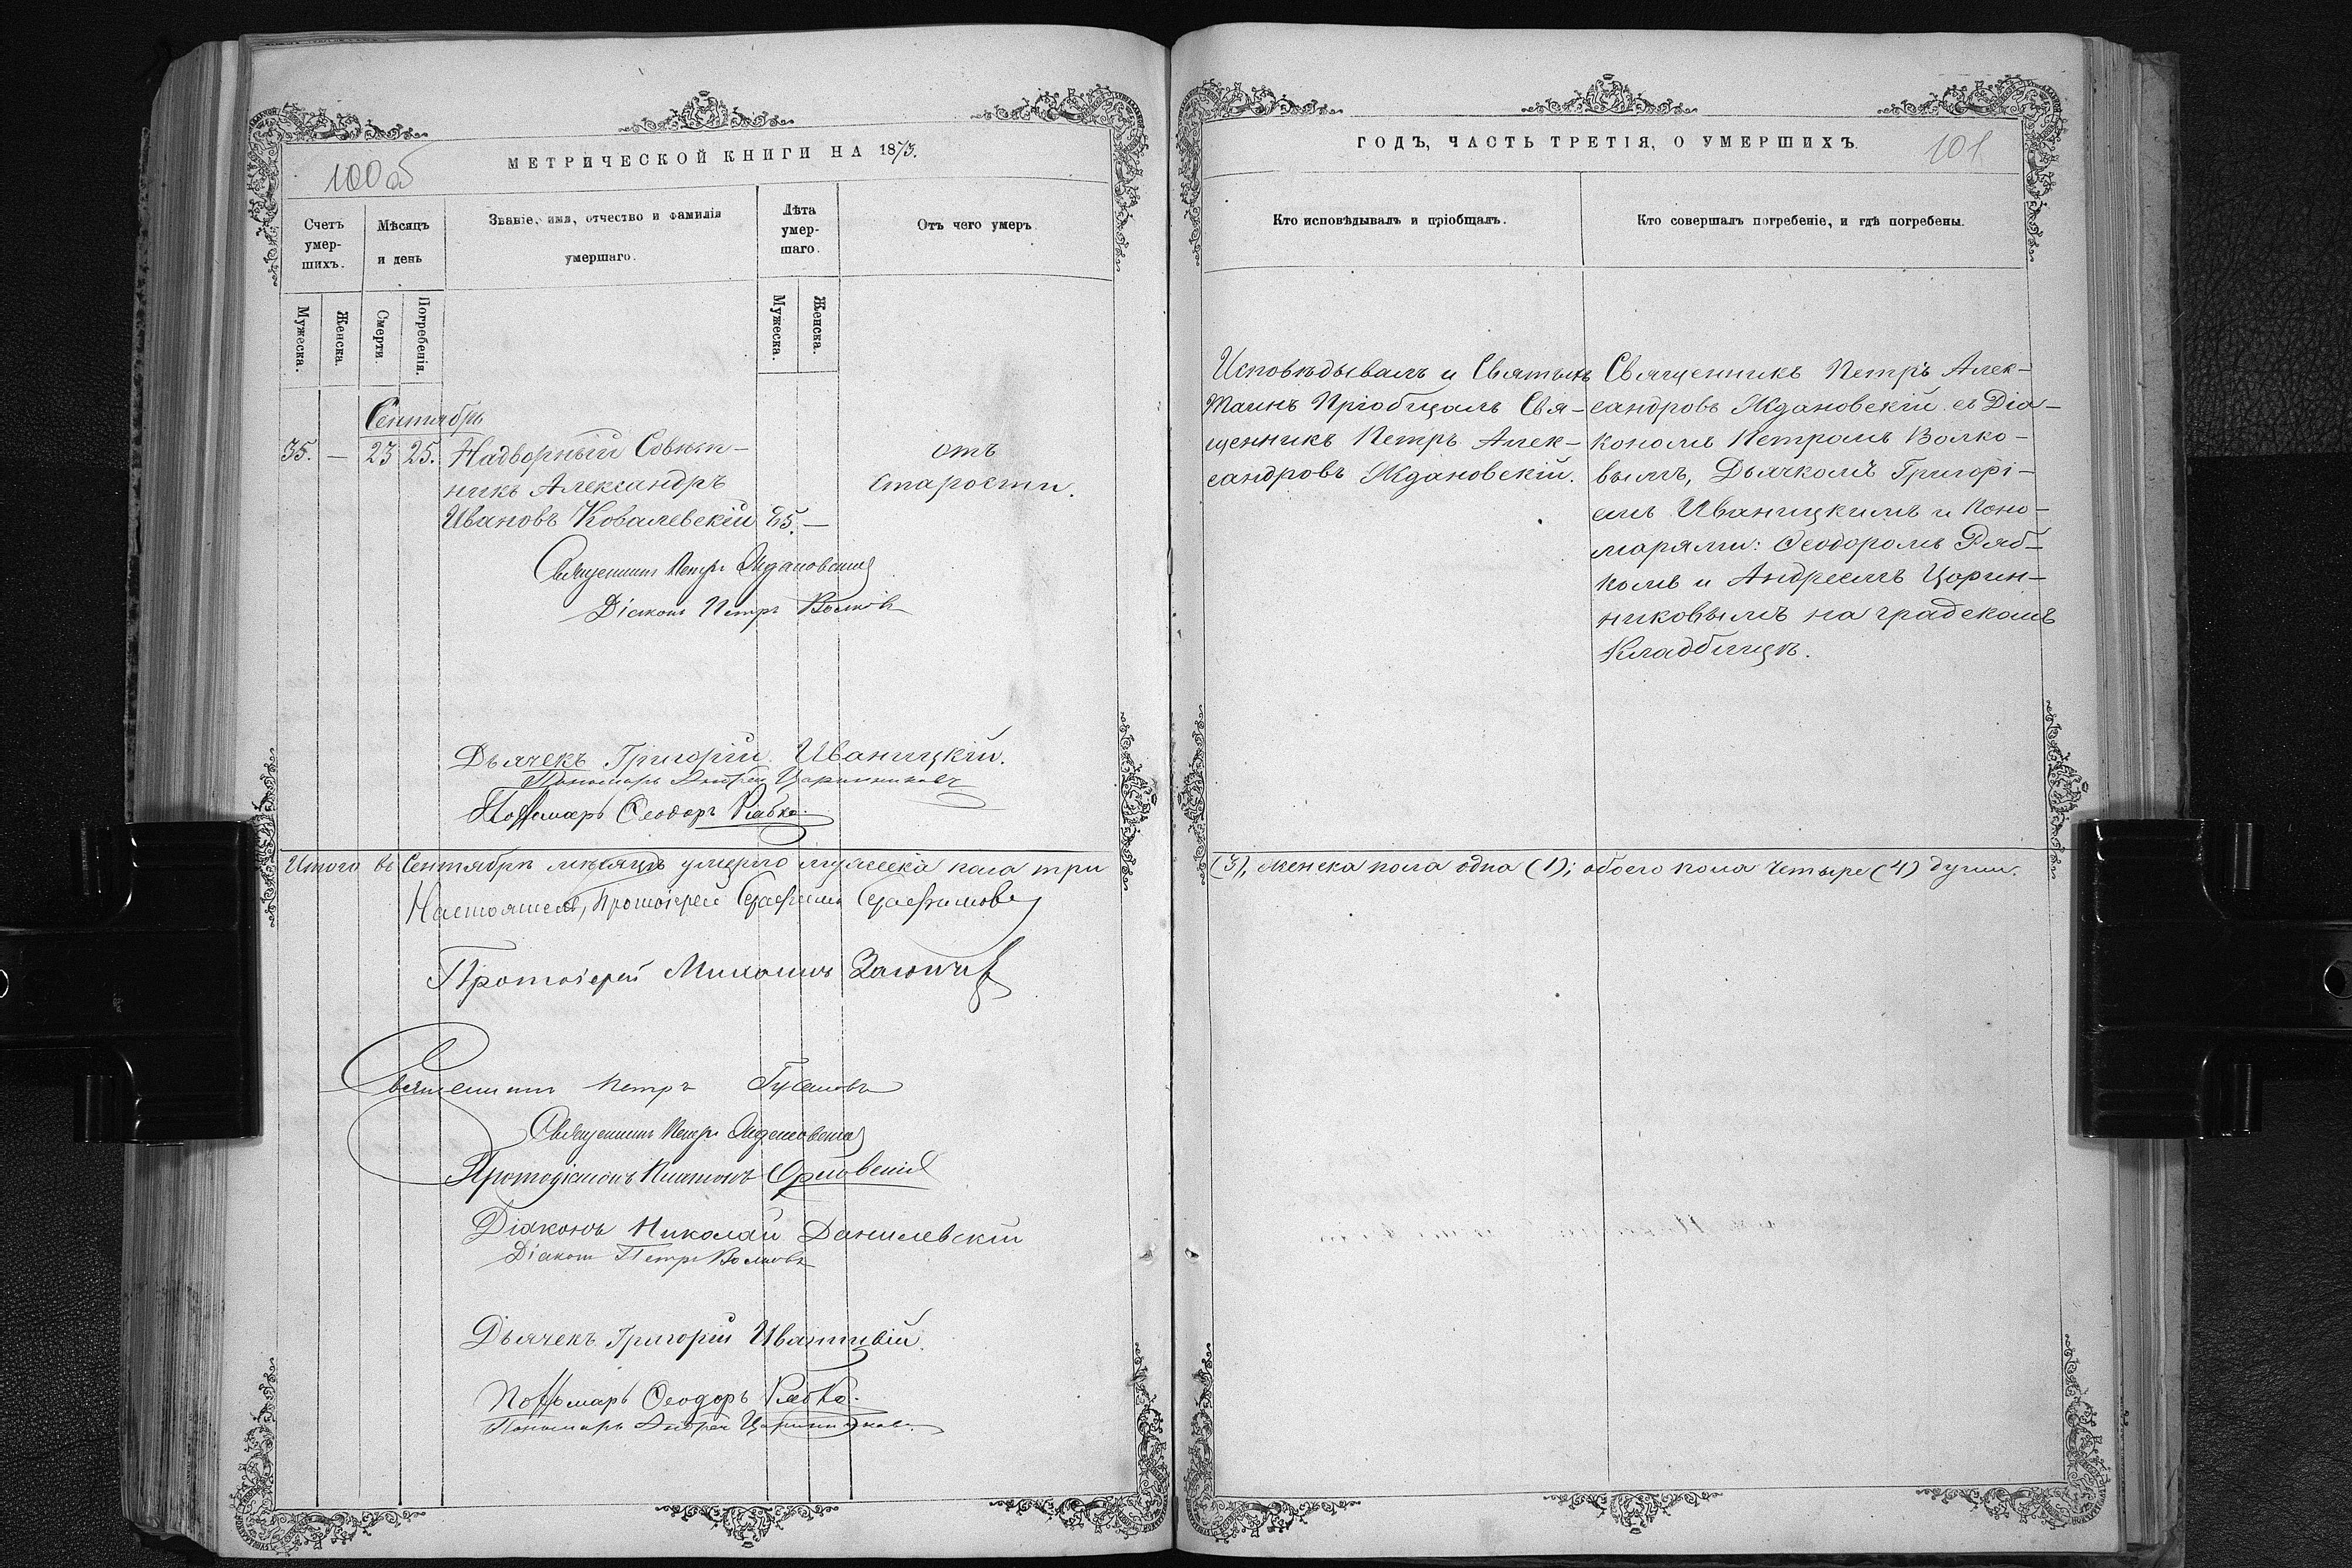 МЕТРИЧЕСКОЙ КНИГИ НА 1873.
100об
Счетъ умер-шихъ.
Мѣсяцъ и день
Званіе, имя, отчество и фамилія умершаго.
Лѣта умер-шаго.
Отъ чего умеръ
Мужеска.
Женска.
Смерти.
Погребенія.
Мужеска.
Женска.
Сентябрь
35. — 23 25. Надворный Совѣт-
никъ Александръ
Ивановъ Ковалевскій 65. —
отъ
старости.
Священникъ Петръ Ждановскій
Діаконъ Петръ Волковъ
Дьячекъ Григорій Иваницкій.
Пономарь Андрей Царинниковъ
Пономарь Ѳеодоръ Рябко.
Итого въ Сентябрѣ мѣсяцѣ умерло мужеска пола три
Настоятель, Протоіерей Серафимъ Серафимовъ
Протоіерей Михаилъ
Священникъ Петръ
Священникъ Петръ Ждановскій
Протодіаконъ Платонъ Орловскій
Діаконъ Николай Данилевскій
Діаконъ Петръ Волковъ
Дьячекъ Григорій Иваницкій.
Пономарь Ѳеодоръ Рябко.
Пономарь Андрей Царинниковъ.
ГОДЪ, ЧАСТЬ ТРЕТІЯ, О УМЕРШИХЪ.
101
Кто исповѣдывалъ и пріобщалъ.
Кто совершалъ погребеніе, и гдѣ погребены.
Исповѣдывалъ и Святыхъ
Таинъ Пріобщалъ Свя-
щенникъ Петръ Алек-
сандровъ Ждановскій.
Священникъ Петръ Алек-
сандровъ Ждановскій съ Діа-
кономъ Петромъ Волко-
вымъ, Дьячкомъ Григорі-
емъ Иваницкимъ и Поно-
марями: Ѳеодоромъ Ряб-
комъ и Андреемъ Царин-
никовымъ на градскомъ
Кладбищѣ.
(3), женска пола одна (1); обоего пола четыре (4) души.